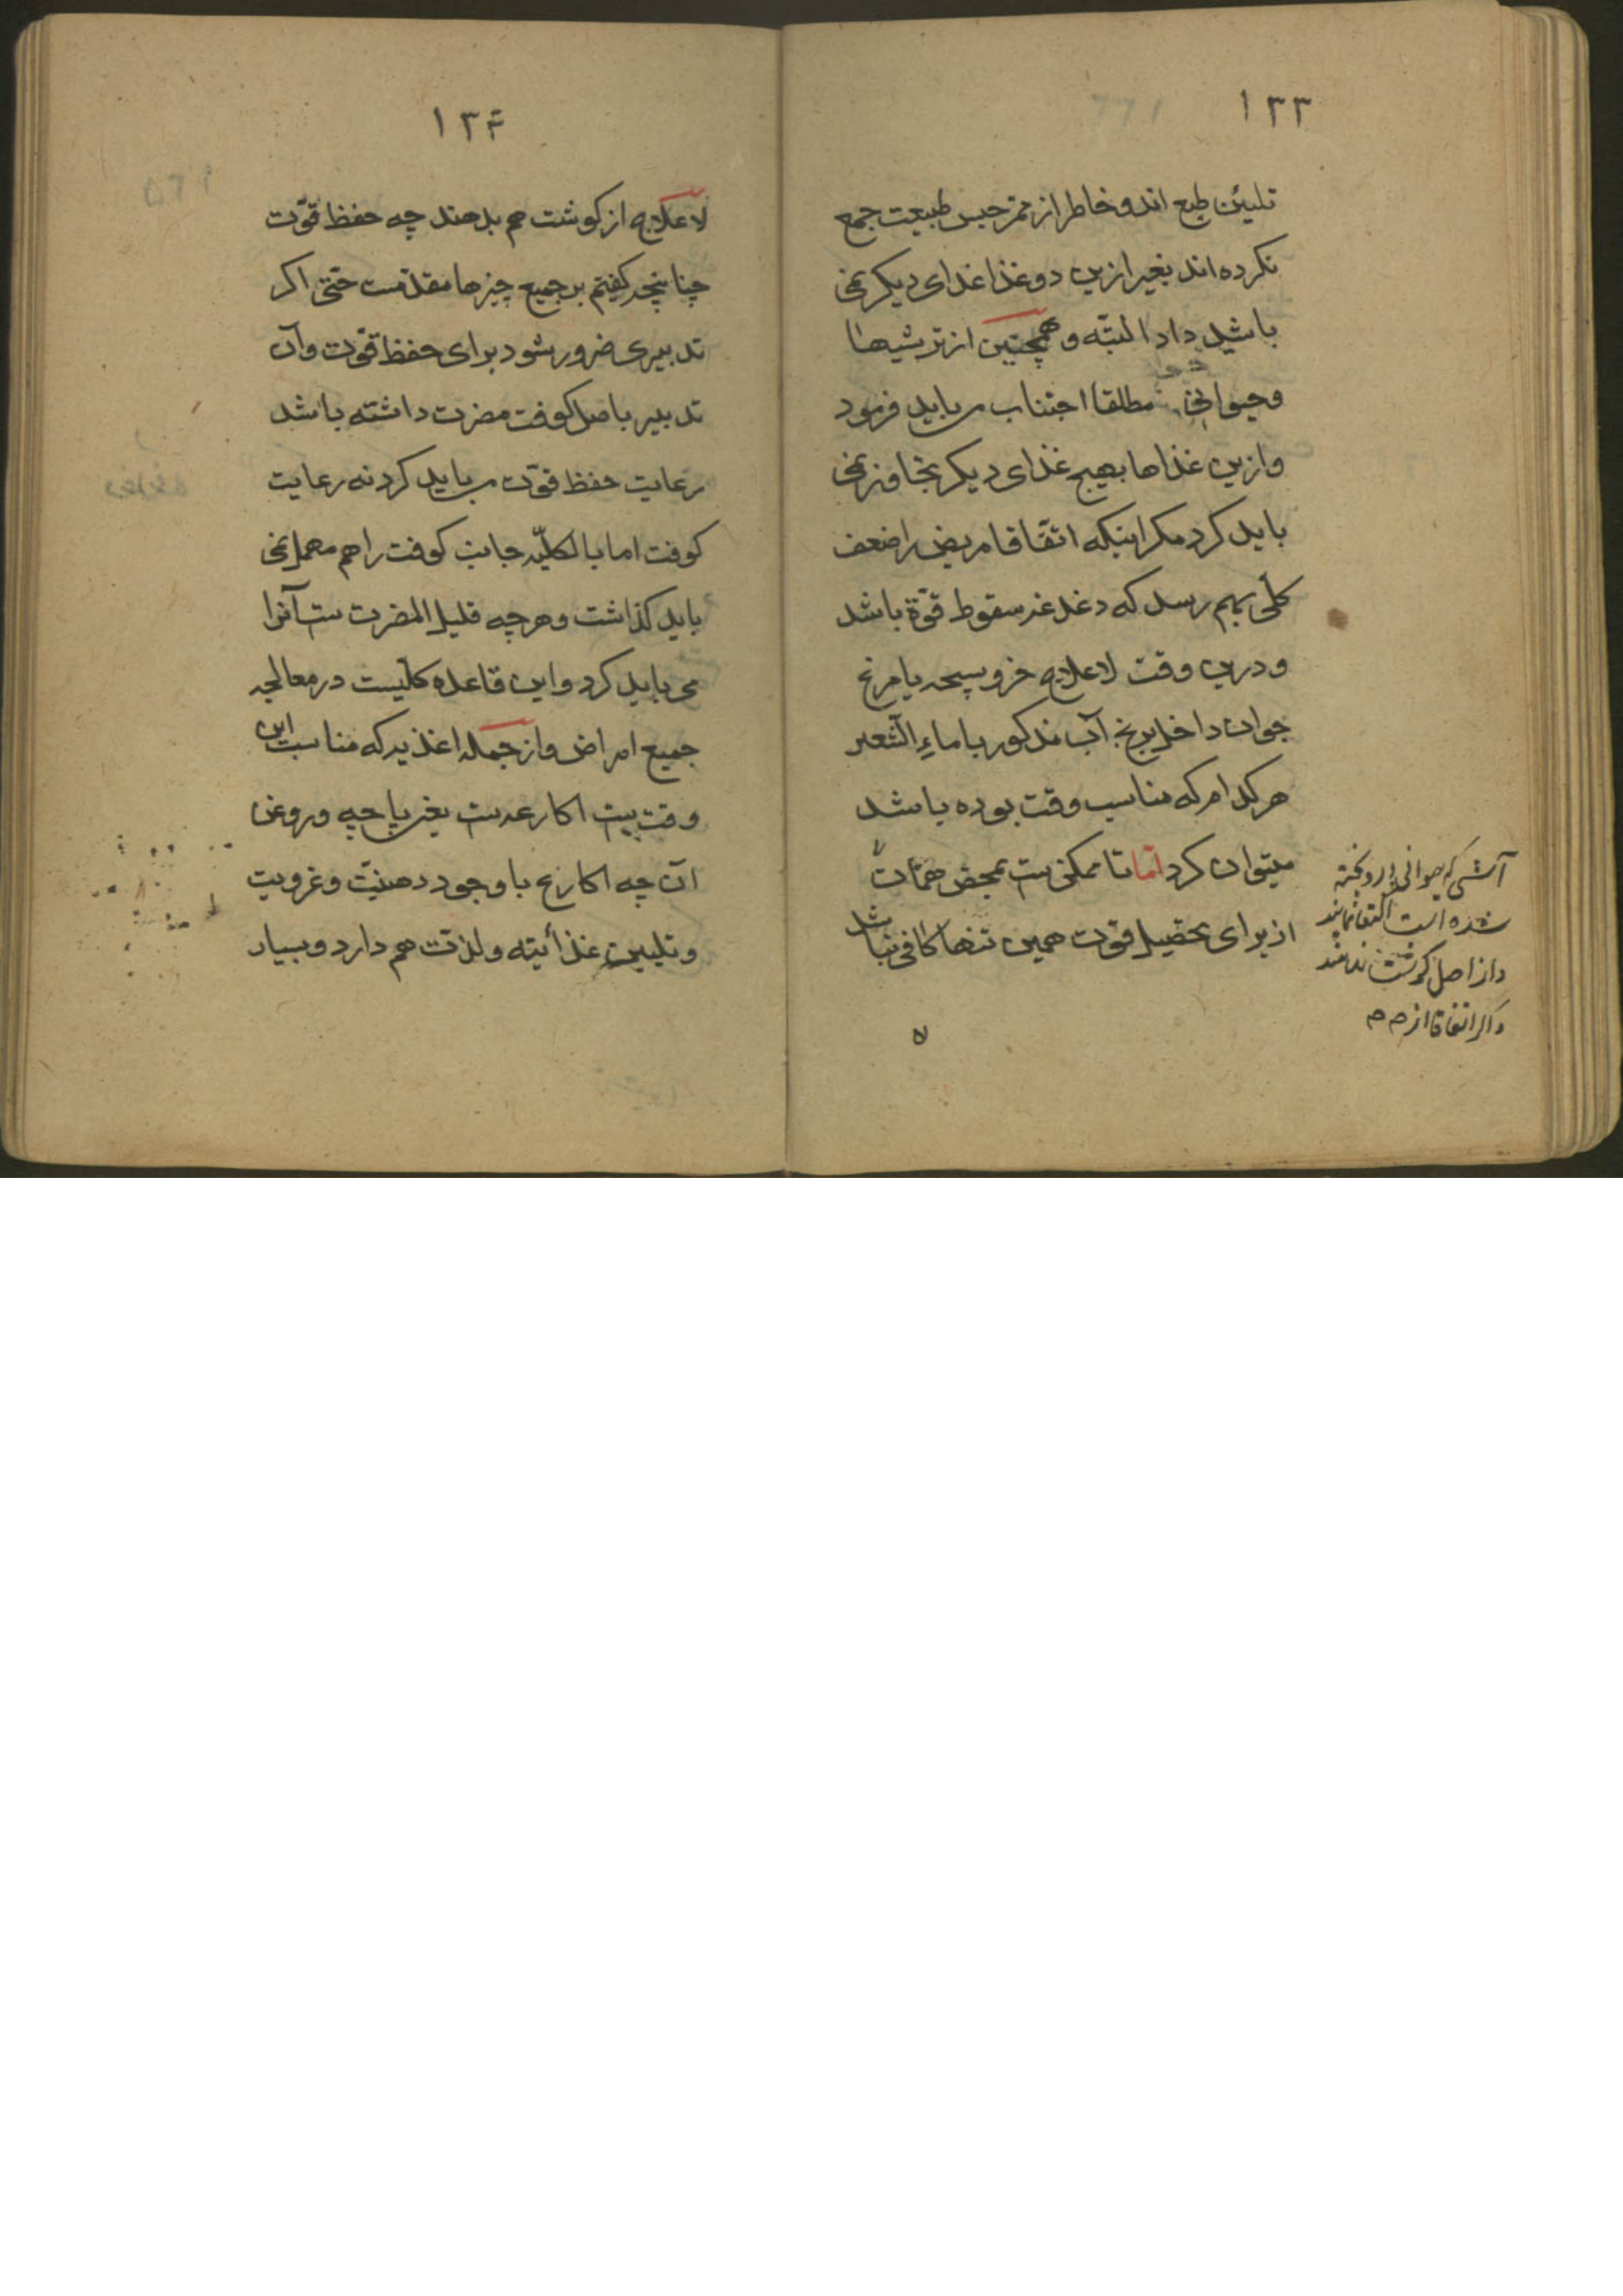 ۱۳۳
تلیین طبع اند و خاطر از ممر حبس طبیعت جمع
نکرده اند بغیر ازین دو غذا غذای دیکر نمی
باشید داد البته و همچنین از ترشیها
و حیوانی مطلقا اجتناب می باید فرمود
و ازین غذاها بهیچ غذای دیکر تجاوز نمی
باید کرد مکر اینکه اتفاقا مریض را ضعف
کلی بهم رسد که دغدغه سقوط قوة باشد
و درین وقت لاعلاج خروسبچه یا مرغ
جوان داخل برنج آب مذکور یا ماء الشعیر
هر کدام که مناسب وقت بوده باشد
میتوان کرد اما تا ممکن ست بمحض همان
از برای تحصیل قوت همین تنها کافی نباشد
آشی که حیوانی در او پخته
شده است اکتفا نمایند
و از اصل کوشت ندهند
و اکر اتفاقا از
۱۳۴
لاعلاج از کوشت هم بدهند چه حفظ قوّت
چنانچه کفتم بر جمیع چیزها مقدمست حتی اکر
تدبیری ضرور شود برای حفظ قوّت و آن
تدبیر باصل کوفت مضرت داشته باشد
رعایت حفظ قوّت می باید کرد نه رعایت
کوفت اما بالکلیّه جانب کوفت را هم مهمل نمی
باید کذاشت و هرچه قلیل المضرت ست آنرا
می باید کرد و این قاعده کلّیست در معالجه
جمیع امراض و از جمله اغذیه که مناسب این
وقت ست اکارعست یعنی پاچه و روغن
آن چه اکارع با وجود دهنیّت و غرویت
و تلیین غذائیته و لذت هم دارد و بسیار